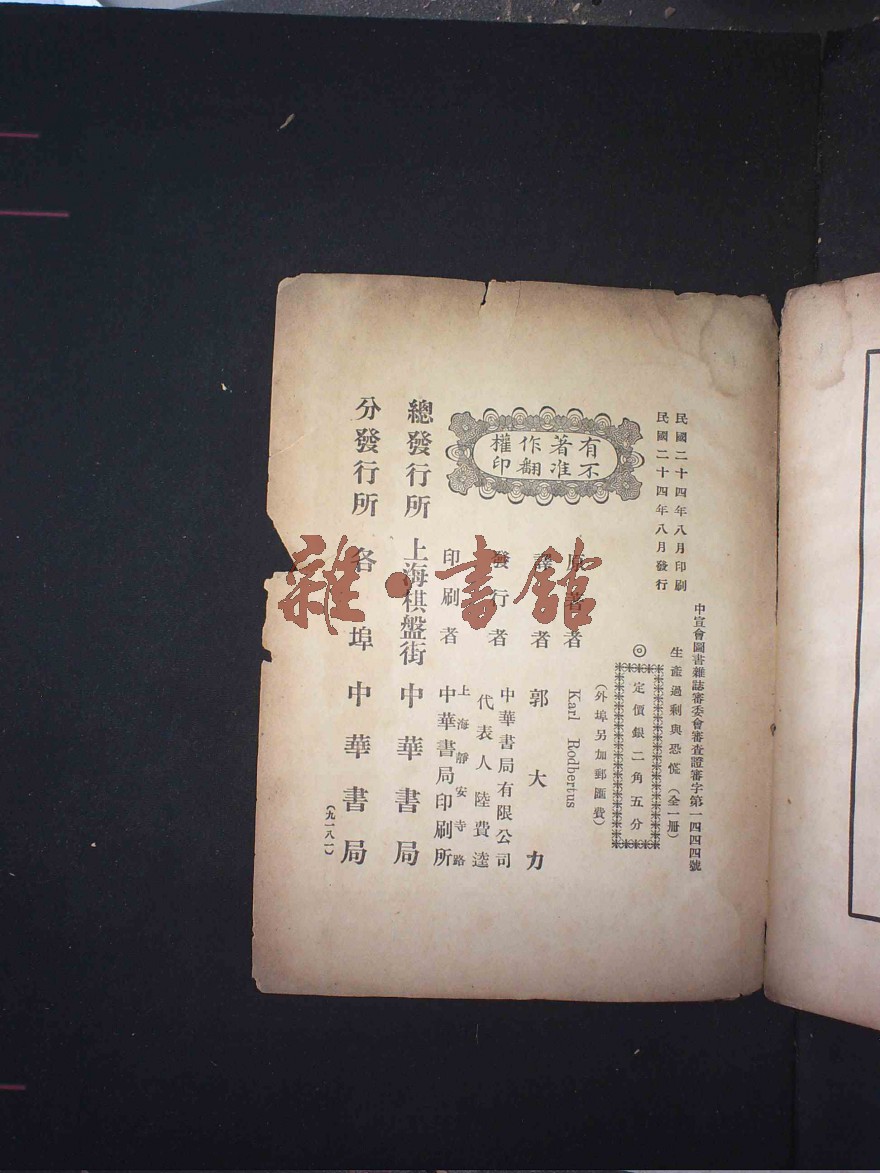 民國二十四年八月印刷
民國二十四年八月發行
中宣會圖書雜誌審委會審查證審字第一四四四號
生產過剩與恐慌（全一冊）
◎定價銀二角五分
（外埠另加郵匯費）
有著作權
不准翻印
原著者 Karl Rodbertus
譯者 郭大力
發行者 中華書局有限公司
代表人 陸費逵
印刷者 上海靜安寺路
中華書局印刷所
總發行所 上海棋盤街 中華書局
分發行所 各埠 中華書局
（九一八一）
雜·書館